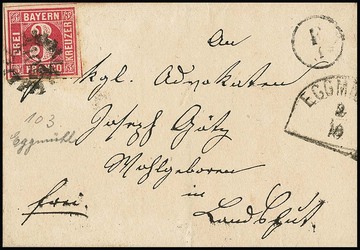 BAYERN
DREI
KREUZER
3
FRANCO
An
kgl. Advokaten
Joseph Götz
Wohlgeboren
in
Landshut.
frei.
103
Eggmühl
EGGM